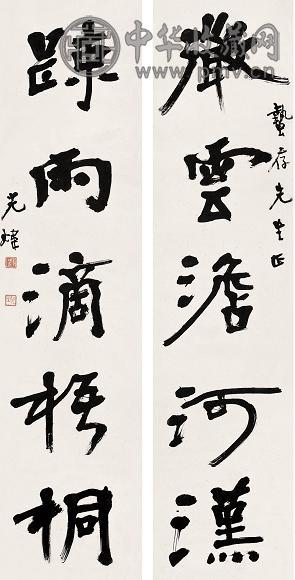 蟄存先生正
微雲澹河漢
踈雨滴梧桐
光煒
中华收藏网